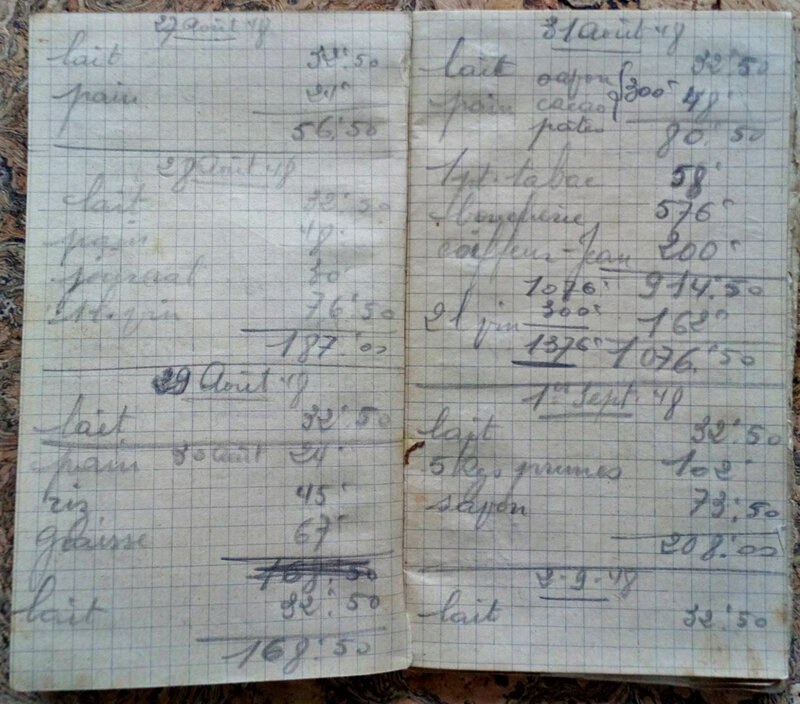 27 Août 48
lait 32'50
pain 24'
56'50
28 Août 48
lait 32'50
pain 48'
30'
vin 76'50
187'00
29 Août 48
lait 32'50
pain 30 août 24'
riz 45'
graisse 67'
168'50
lait 32'50
168'50
31 Août 48
lait 32'50
pain cacao 300' 48'
pâtes 80'50
1 pt. tabac 58'
Boucherie 576'
coiffeur-Jean 200'
1076' 914'50
2 l vin 300' 162'
1376' 1076'50
1er Sept 48
lait 32'50
5 kgs prunes 102'
savon 73'50
208'00
2-9-48
lait 32'50